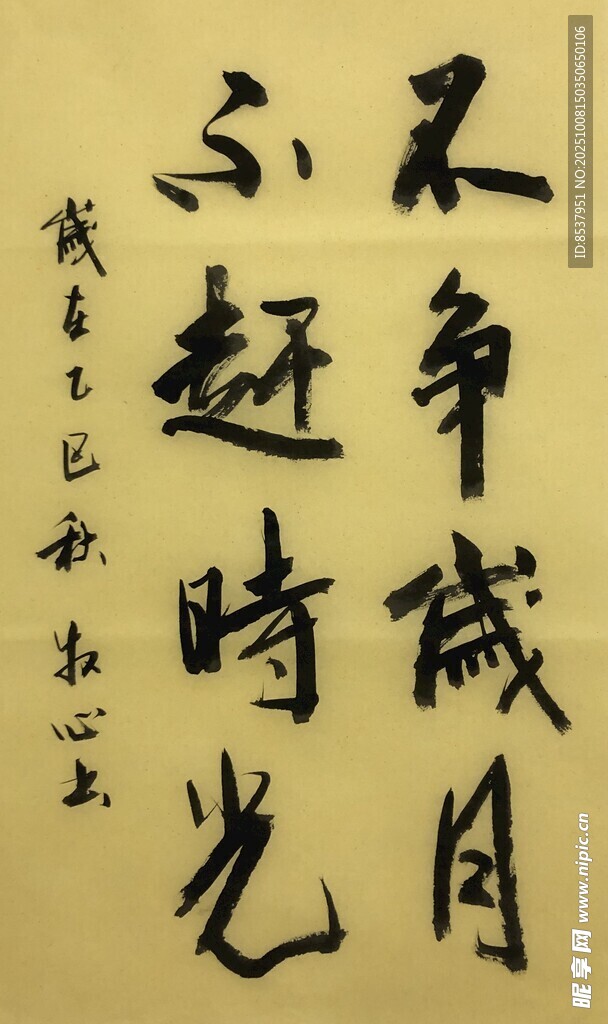 不争歲月
不赶時光
歲在乙巳秋 牧心书
ID:8537951 NO:20251008150350650106
昵享网 www.nipic.cn